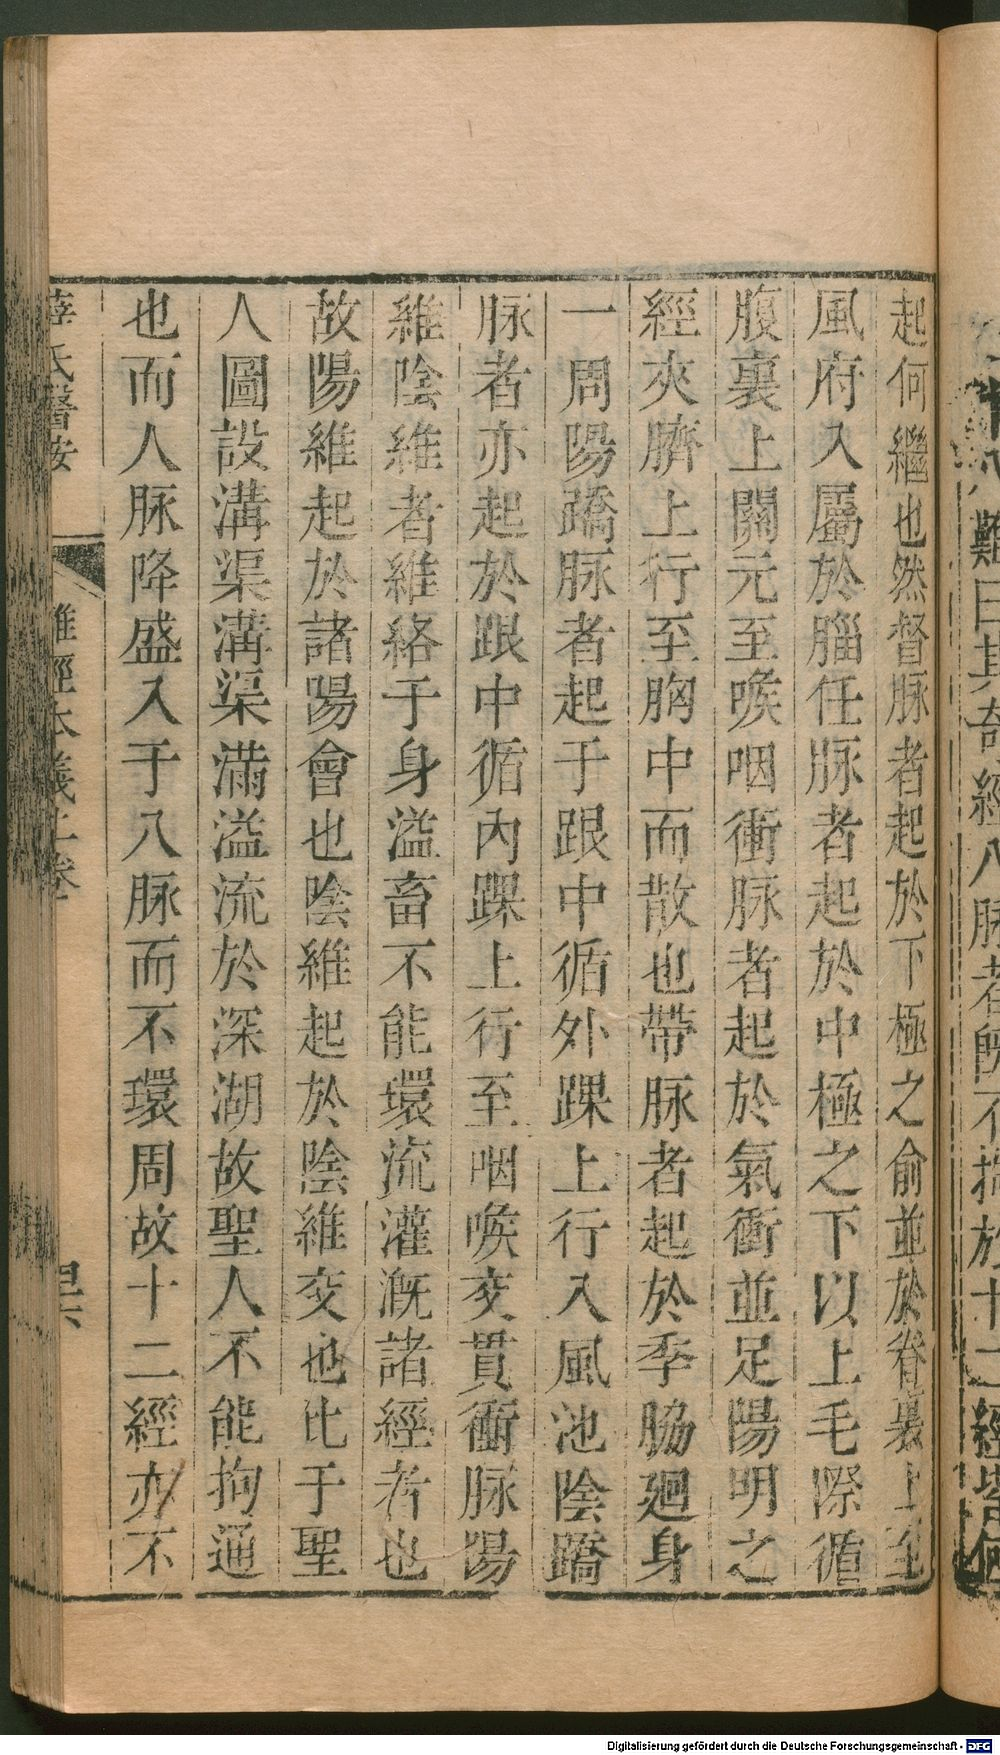 難曰其奇經八脉者既不拘於十二經皆何
起何繼也然督脉者起於下極之俞並於脊裏上至
風府入屬於腦任脉者起於中極之下以上毛際循
腹裏上關元至喉咽衝脉者起於氣衝並足陽明之
經夾臍上行至胸中而散也帶脉者起於季脇廻身
一周陽蹻脉者起于跟中循外踝上行入風池陰蹻
脉者亦起於跟中循內踝上行至咽喉交貫衝脉陽
維陰維者維絡于身溢畜不能環流灌溉諸經者也
故陽維起於諸陽會也陰維起於諸陰交也比于聖
人圖設溝渠溝渠滿溢流於深湖故聖人不能拘通
也而人脉隆盛入于八脉而不環周故十二經亦不
薛氏醫按 難經本義上卷
Digitalisierung gefördert durch die Deutsche Forschungsgemeinschaft - DFG